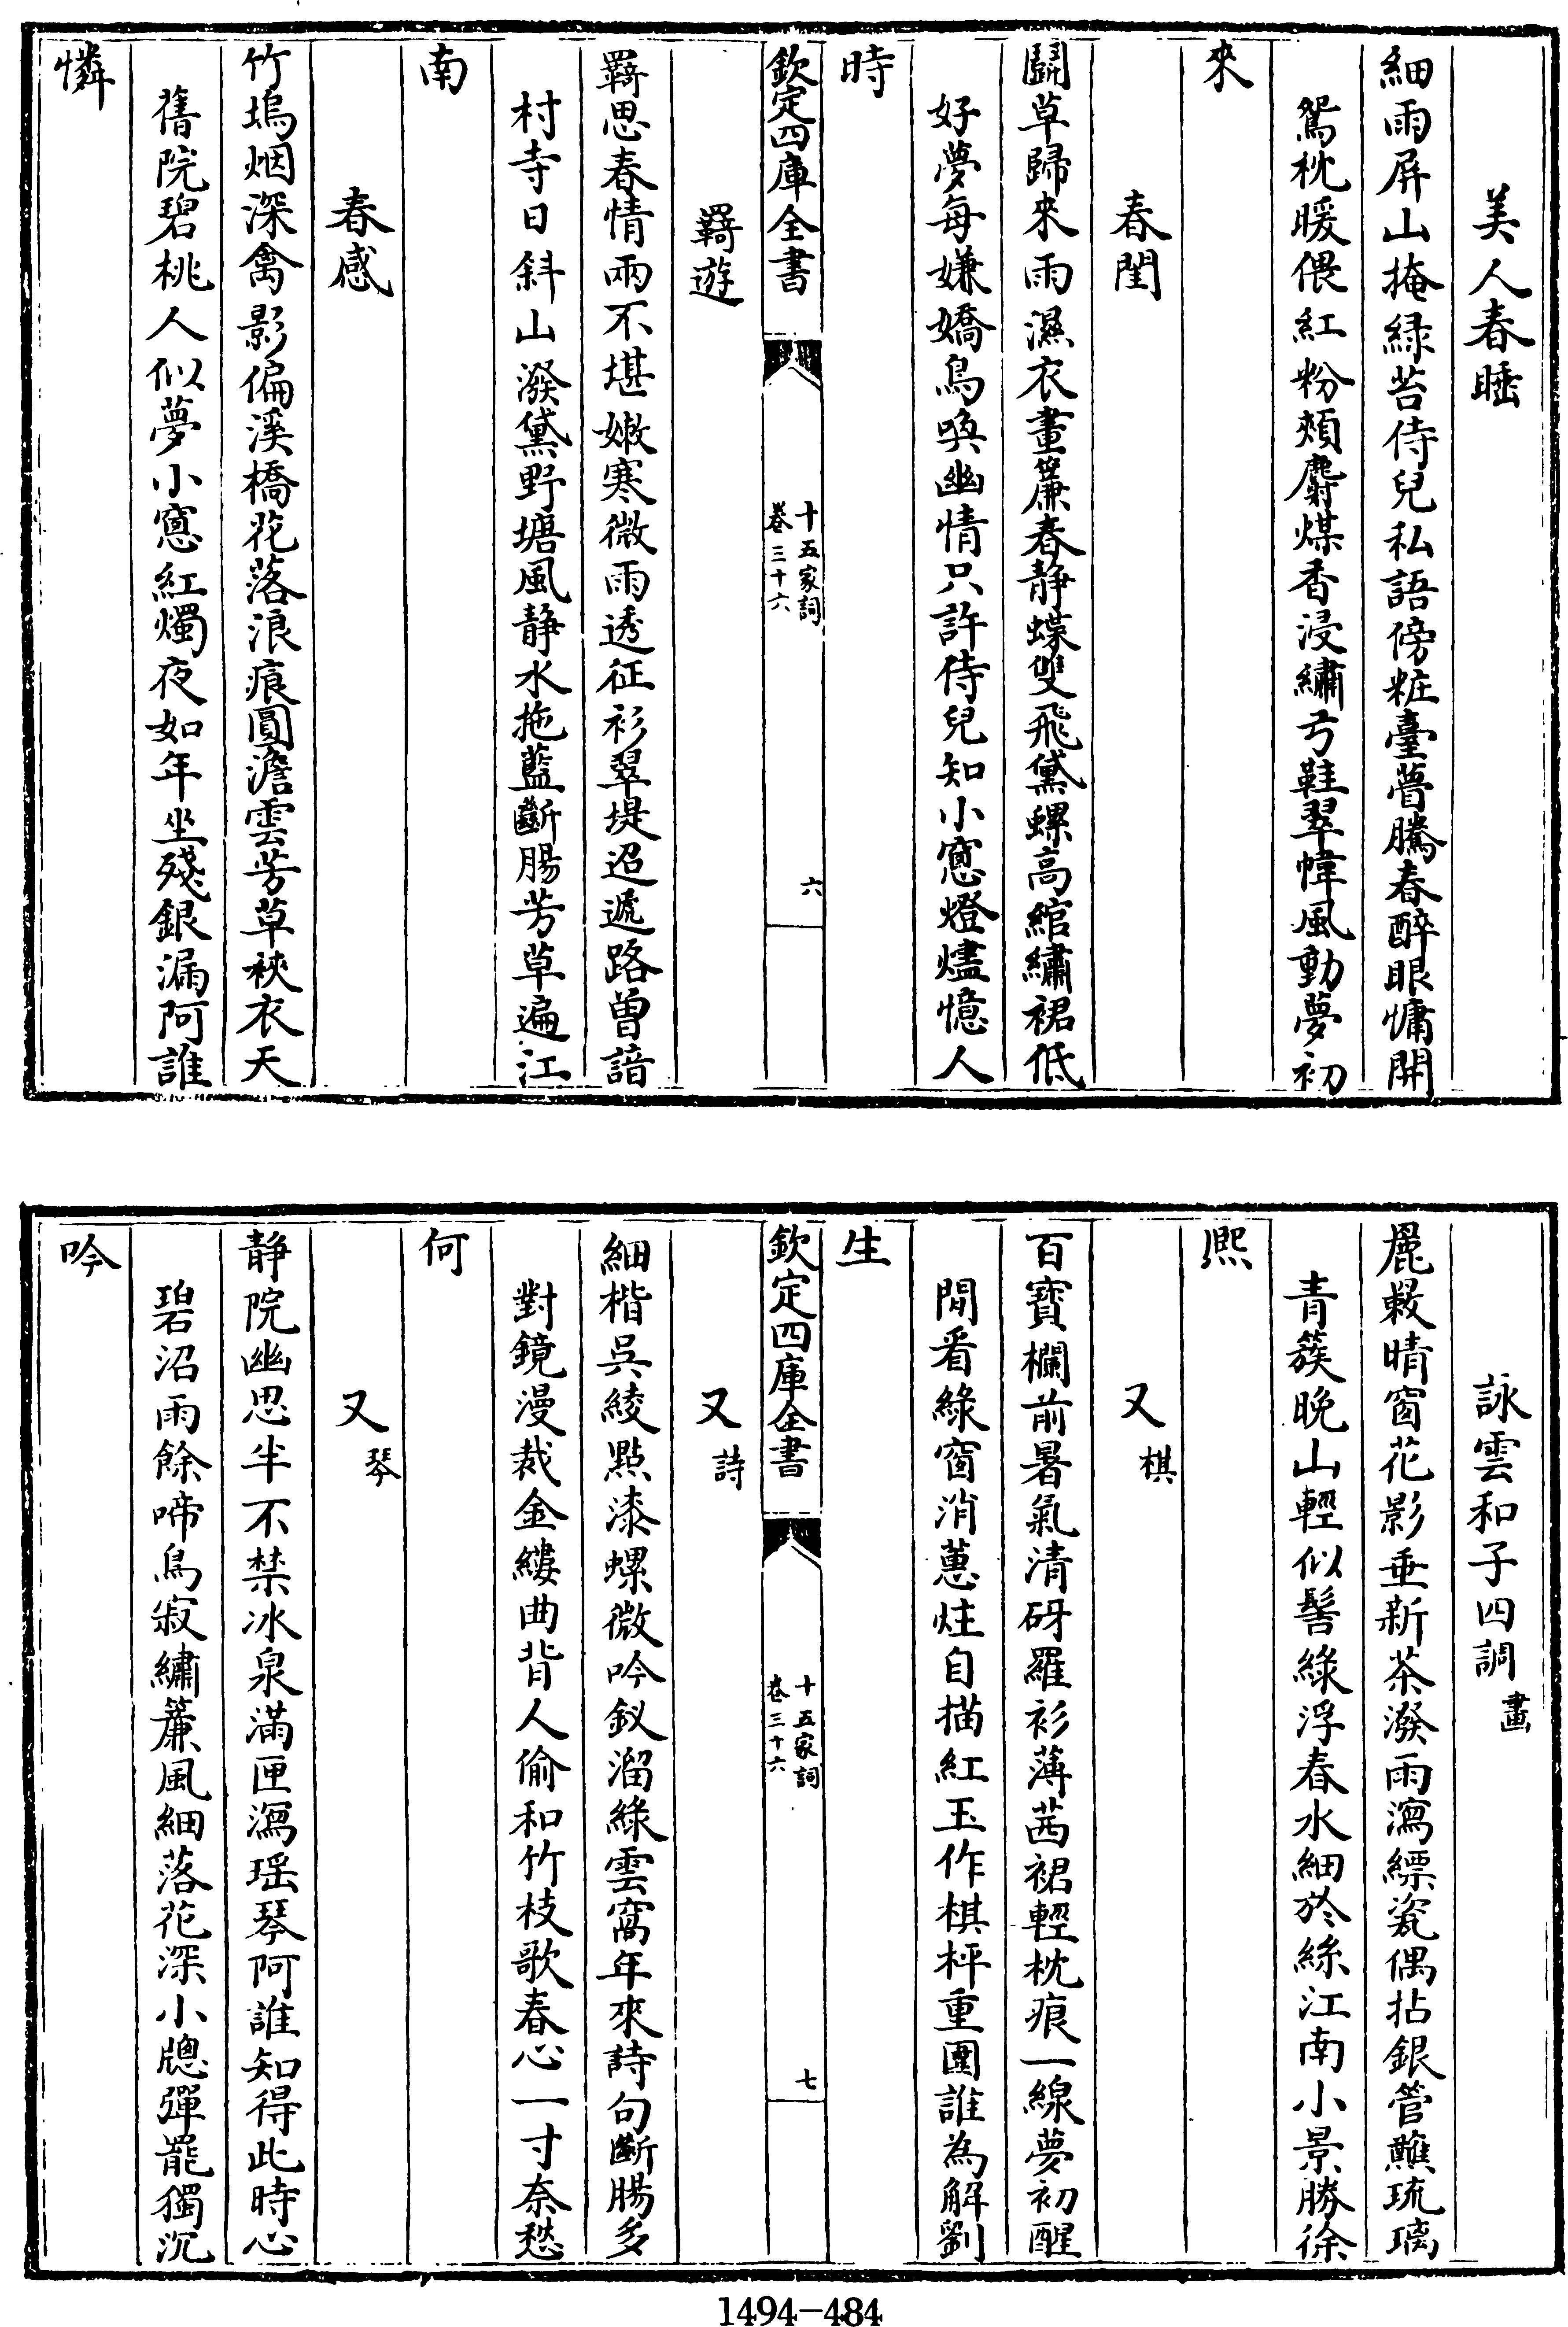 美人春睡
細雨屏山掩緑苔侍兒私語傍粧臺瞢騰春醉眼慵開
鴛枕暖偎紅粉頰麝煤香浸繡弓鞋翠幃風動夢初
來
春閨
鬬草歸來雨濕衣畫簾春静蝶雙飛黛螺高綰繡裙低
好夢每嫌嬌鳥喚幽情只許侍兒知小窻燈燼憶人
時
欽定四庫全書
十五家詞
卷三十六
六
羇遊
羇思春情兩不堪嫩寒微雨透征衫翠堤迢遞路曾諳
村寺日斜山潑黛野塘風静水拖藍斷腸芳草遍江
南
春感
竹塢烟深禽影偏溪橋花落浪痕圓澹雲芳草裌衣天
舊院碧桃人似夢小窻紅燭夜如年坐殘銀漏阿誰
憐
詠雲和子四調畫
麂㲣晴窗花影垂新茶潑雨瀉縹瓷偶拈銀管蘸琉璃
青簇晚山輕似髻綠浮春水細於絲江南小景勝徐
熙
又棋
百寶欄前暑氣清砑羅衫薄茜裙輕枕痕一線夢初醒
閒看綠窗消蕙炷自描紅玉作棋枰重圍誰為解劉
生
欽定四庫全書
十五家詞
卷三十六
七
又詩
細楷吳綾點漆螺微吟釵溜綠雲窩年來詩句斷腸多
對鏡漫裁金縷曲背人偷和竹枝歌春心一寸奈愁
何
又琴
静院幽思半不禁冰泉滿匣瀉瑶琴阿誰知得此時心
碧沼雨餘啼鳥寂繡簾風細落花深小牎彈罷獨沉
吟
1494-484